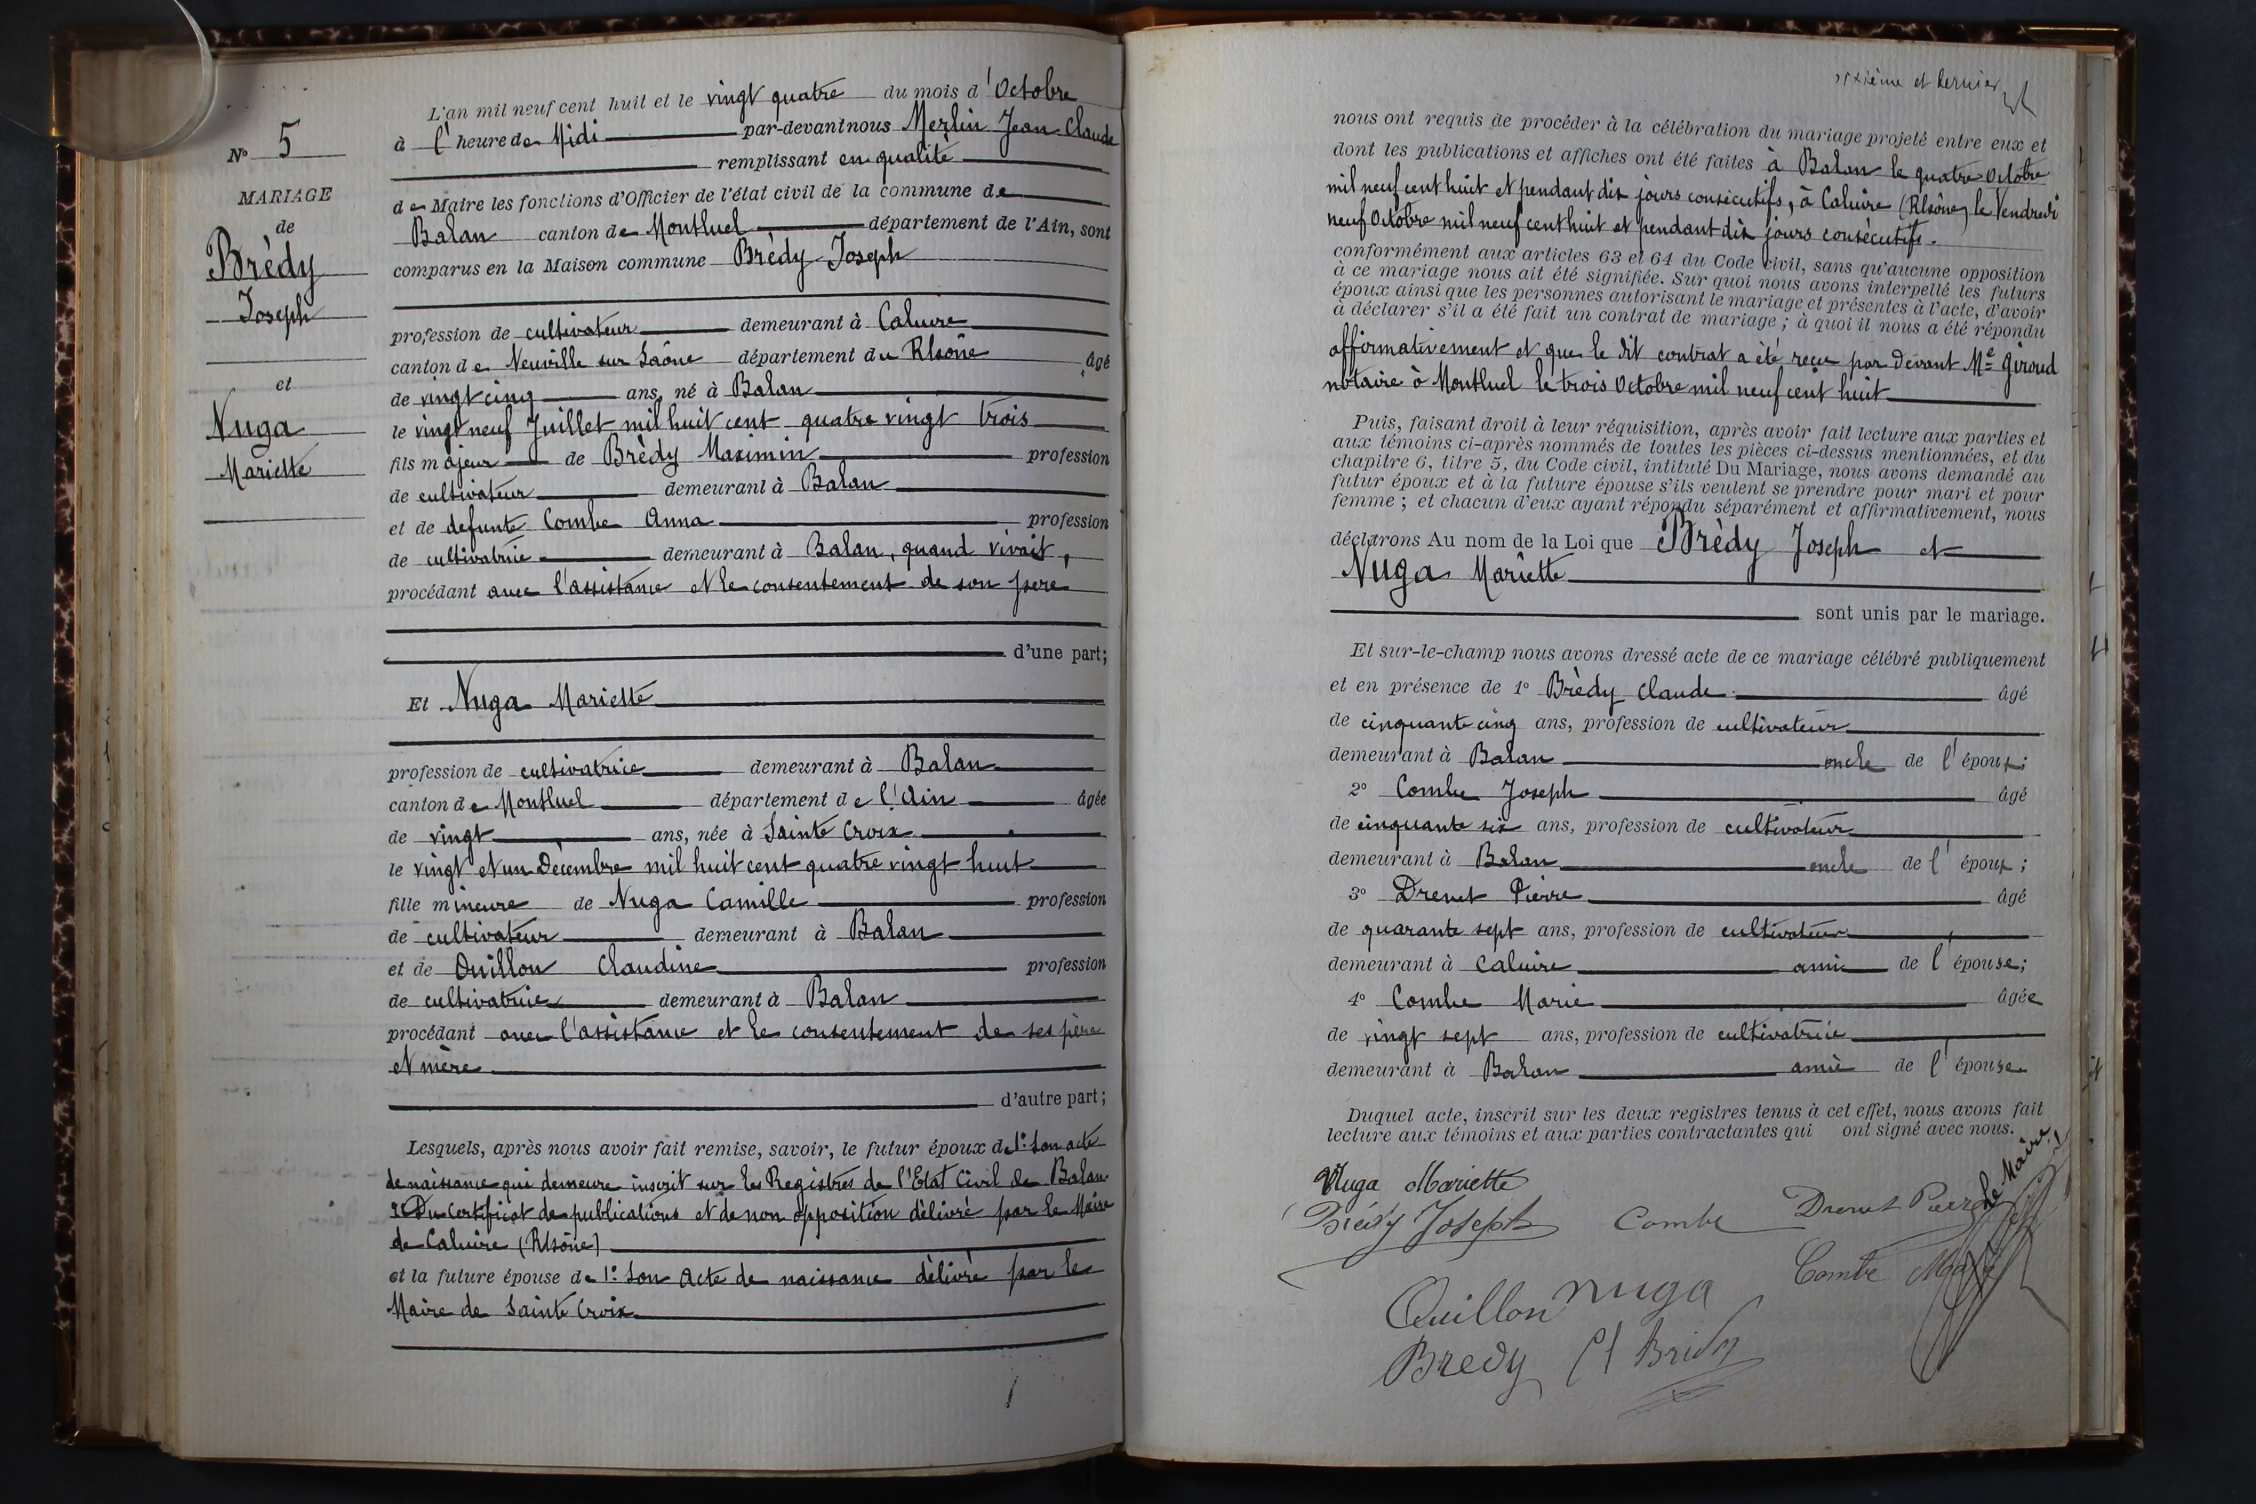 N° 5
MARIAGE
de
Brèdy
Joseph
et
Nuga
Mariette
L'an mil neuf cent huit et le vingt quatre du mois d'Octobre
à l'heure de Midi par-devant nous Merlin Jean Claude
remplissant en qualité
de Maire les fonctions d'Officier de l'état civil de la commune de
Balan canton de Montluel département de l'Ain, sont
comparus en la Maison commune Brèdy Joseph
profession de cultivateur demeurant à Caluire
canton de Neuville sur Saône département du Rhône âgé
de vingt cinq ans, né à Balan
le vingt neuf Juillet mil huit cent quatre vingt trois
fils majeur de Brèdy Maximin profession
de cultivateur demeurant à Balan
et de defunte Combe Anna profession
de cultivatrice demeurant à Balan, quand vivait,
procédant avec l'assistance et le consentement de son père
d'une part;
Et Nuga Mariette
profession de cultivatrice demeurant à Balan
canton de Montluel département de l'Ain âgée
de vingt ans, née à Sainte Croix
le vingt et un Décembre mil huit cent quatre vingt huit
fille mineure de Nuga Camille profession
de cultivateur demeurant à Balan
et de Ouillon Claudine profession
de cultivatrice demeurant à Balan
procédant avec l'assistance et le consentement de ses père
et mère
d'autre part;
Lesquels, après nous avoir fait remise, savoir, le futur époux de 1°: Son acte
de naissance qui demeure inscrit sur les Registres de l'Etat Civil de Balan
2° Du Certificat de publications et de non opposition délivré par le Maire
de Caluire (Rhône)
et la future épouse de 1°: Son Acte de naissance délivré par le
Maire de Sainte Croix
et dernier
nous ont requis de procéder à la célébration du mariage projeté entre eux et
dont les publications et affiches ont été faites à Balan le quatre Octobre
mil neuf cent huit et pendant dix jours consécutifs, à Caluire (Rhône) le Vendredi
neuf Octobre mil neuf cent huit et pendant dix jours consécutifs.
conformément aux articles 63 et 64 du Code civil, sans qu'aucune opposition
à ce mariage nous ait été signifiée. Sur quoi nous avons interpellé les futurs
époux ainsi que les personnes autorisant le mariage et présentes à l'acte, d'avoir
à déclarer s'il a été fait un contrat de mariage; à quoi il nous a été répondu
affirmativement et que le dit contrat a été reçu par devant Me Giroud
notaire à Montluel le trois Octobre mil neuf cent huit
Puis, faisant droit à leur réquisition, après avoir fait lecture aux parties et
aux témoins ci-après nommés de toutes les pièces ci-dessus mentionnées, et du
chapitre 6, titre 5, du Code civil, intitulé Du Mariage, nous avons demandé au
futur époux et à la future épouse s'ils veulent se prendre pour mari et pour
femme; et chacun d'eux ayant répondu séparément et affirmativement, nous
déclarons Au nom de la Loi que Brèdy Joseph et
Nuga Mariette
sont unis par le mariage.
Et sur-le-champ nous avons dressé acte de ce mariage célébré publiquement
et en présence de 1° Brèdy Claude âgé
de cinquante cinq ans, profession de cultivateur
demeurant à Balan oncle de l'époux;
2° Combe Joseph âgé
de cinquante six ans, profession de cultivateur
demeurant à Balan oncle de l'époux;
3° Drevet Pierre âgé
de quarante sept ans, profession de cultivateur
demeurant à Caluire ami de l'épouse;
4° Combe Marie âgée
de vingt sept ans, profession de cultivatrice
demeurant à Balan amie de l'épouse
Duquel acte, inscrit sur les deux registres tenus à cet effet, nous avons fait
lecture aux témoins et aux parties contractantes qui ont signé avec nous.
Le Maire
Nuga Mariette
Brèdy Joseph Combe Drevet Pierre
Combe
Ouillon Nuga
Bredy Cl Brédy